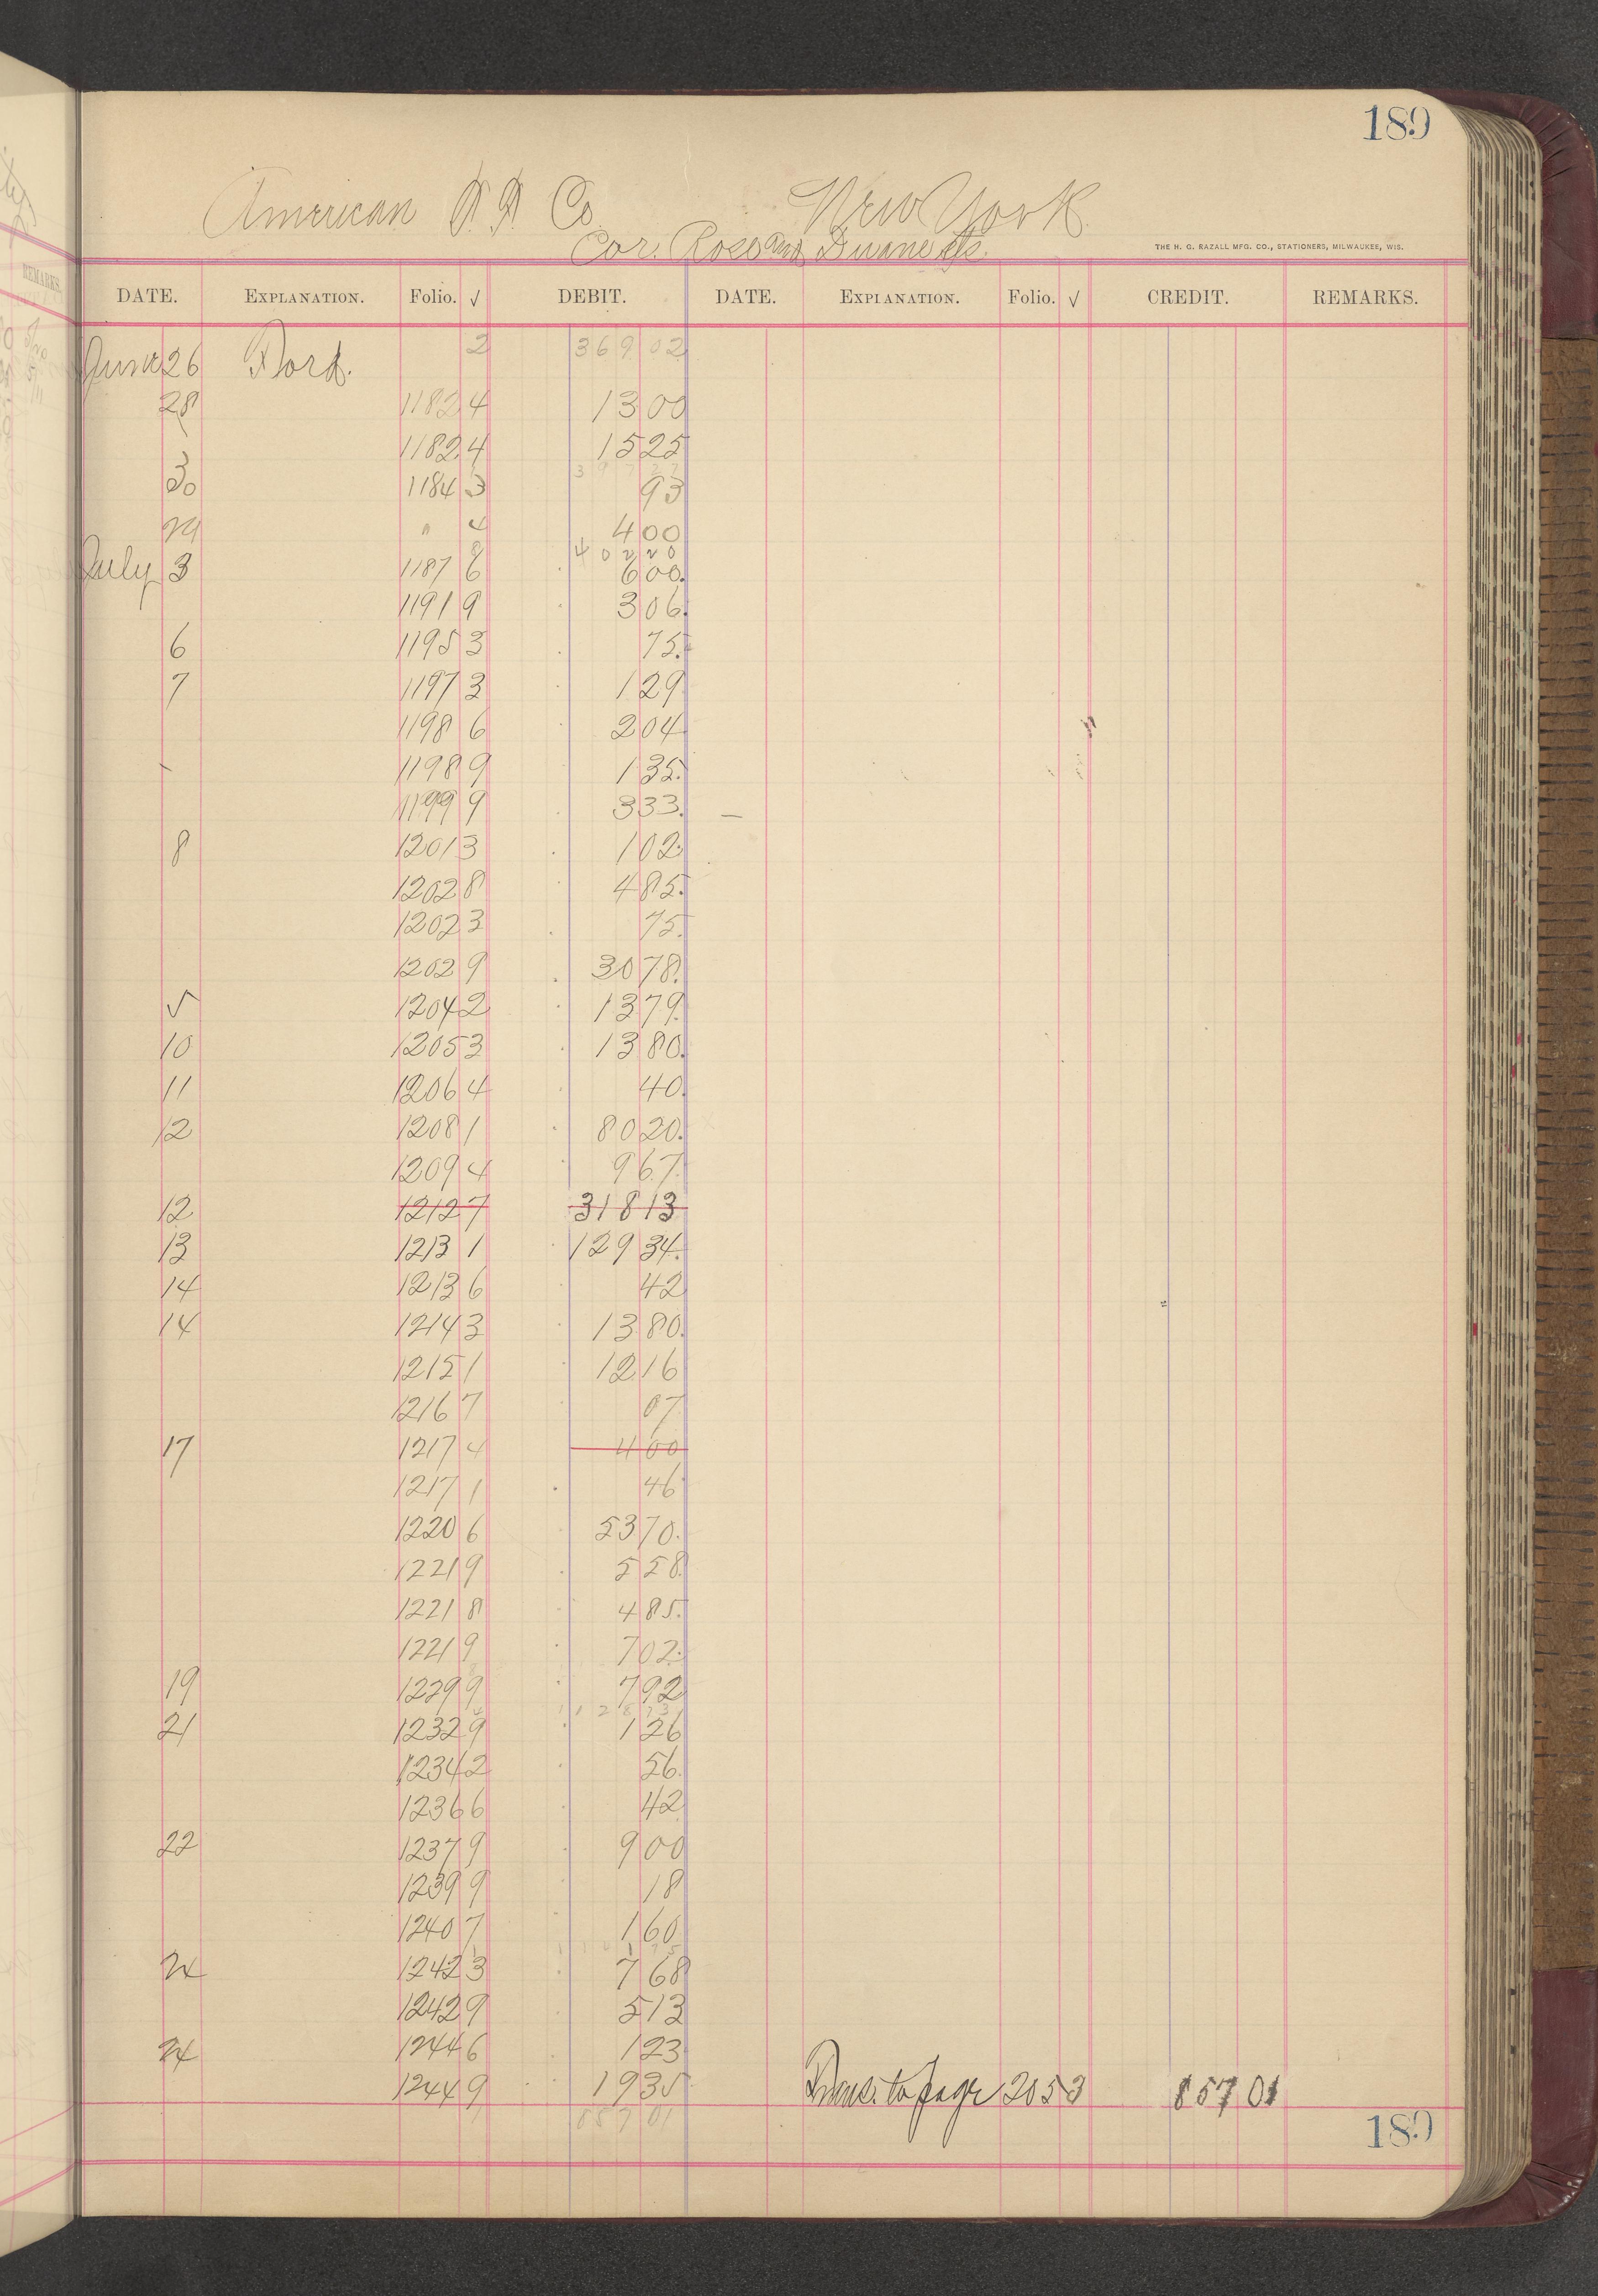 189
American P. P. Co. New York
Cor. Rose and Duane Sts.
THE H. G. RAZALL MFG. CO., STATIONERS, MILWAUKEE, WIS.
DATE. EXPLANATION. Folio. √ DEBIT. DATE. EXPLANATION. Folio. √ CREDIT. REMARKS.
June 26 Ford. 2 369 02
28 1182 4 13 00
1182 4 15 25
397 27
30 1184 3 93
29 " 4 4 00
402 20
July 3 1187 8 6 00
1191 9 3 06
6 1195 3 75
7 1197 3 1 29
1198 6 2 04
1198 9 1 35
1199 9 3 33
8 1201 3 1 02
1202 8 4 85
1202 3 75
1202 9 30 78
√ 1204 2 13 79
10 1205 3 13 80
11 1206 4 40
12 1208 1 80 20
1209 4 9 67
12 1212 7 318 13
13 1213 1 129 34
14 1213 6 42
14 1214 3 13 80
1215 1 12 16
1216 7 07
17 1217 4 4 00
1217 1 46
1220 6 53 70
1221 9 5 58
1221 8 4 85
1221 9 7 02
19 1229 9 7 92
21 1232 9 1 26
1234 2 56
1236 6 42
22 1237 9 9 00
1239 9 18
1240 7 1 60
24 1242 3 7 68
1242 9 5 13
24 1244 6 1 23
1244 9 19 35 Trans. to page 205 3 857 01
857 01
189